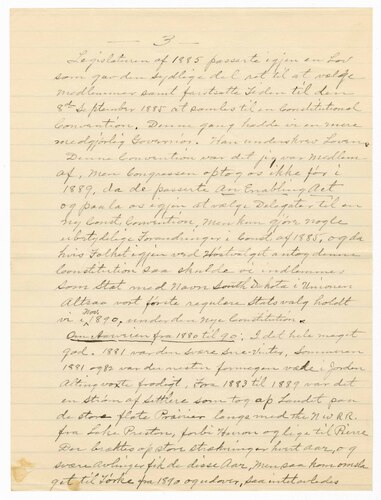 3
Legislaturen af 1885 passerte igjen en Lov
som gav den Sydlige del ret til at vælge
medlemmer samt fastsatte Tiden til den
8de September 1885 at samles til en Constitutional
Convention. Denne gang hadde vi en mere
medgjørlig Governor. Han underskrev Loven.
Denne Convention var det jeg var Medlem
af, Men Congressen optog os ikke før i
1889, da de passerte An Enabling Act
og paala os igjen at vælge Delegater til en
ny Const. Convention, Men kun gjøre nogle
ubetydelige Forandringer i Const. af 1885, og da
hvis Folket igjen ved Høstvalget antog denne
Constitution saa skulde vi indlemmes
som Stat med Navn South Dakota i Unionen
Altsaa vort første regulere Statsvalg holdt
vi i Nov. 1890, under den Nye Constitution.
Om Aarene fra 1880 til 90. I det hele meget
god. 1881 var den svære Snevinter, Sommeren
1881 og 82 var der næsten formegen væde i Jorden
Alting voxte frodigt, Fra 1883 til 1889 var det
en Strøm af Settlere som tog op Landet paa
de store flate Prairier langs med the N.W.R.R.
fra Lake Preston, forbi Huron og lige til Pierre
Der braktes op store Strækninger hvert aar, og
svære avlinger fik de disse Aar, Men saa kom
til Tørke fra 1890 og udover, saa